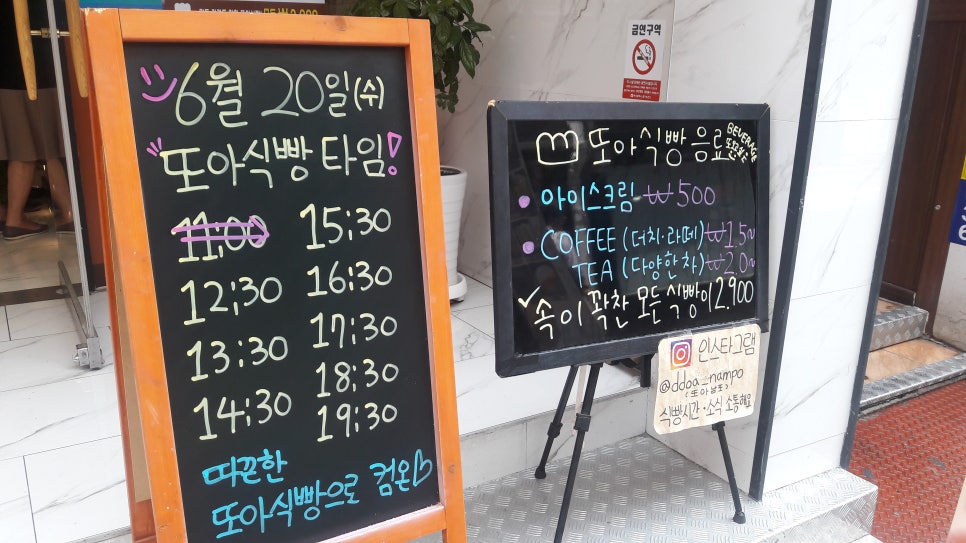 6월 20일(수)
또아식빵 타임!
11:00
12:30
13:30
14:30
15:30
16:30
17:30
18:30
19:30
따끈한
또아식빵으로 컴온
금연구역
또아식빵 음료
BEVERAGE
아이스크림 ₩500
COFFEE (더치·라떼) ₩1.5~
TEA (다양한 차) ₩2.0~
✓속이 꽉찬 모든 식빵이 2,900
인스타그램
@ddoa_nampo
(또아남포)
식빵시간·소식 소통해요